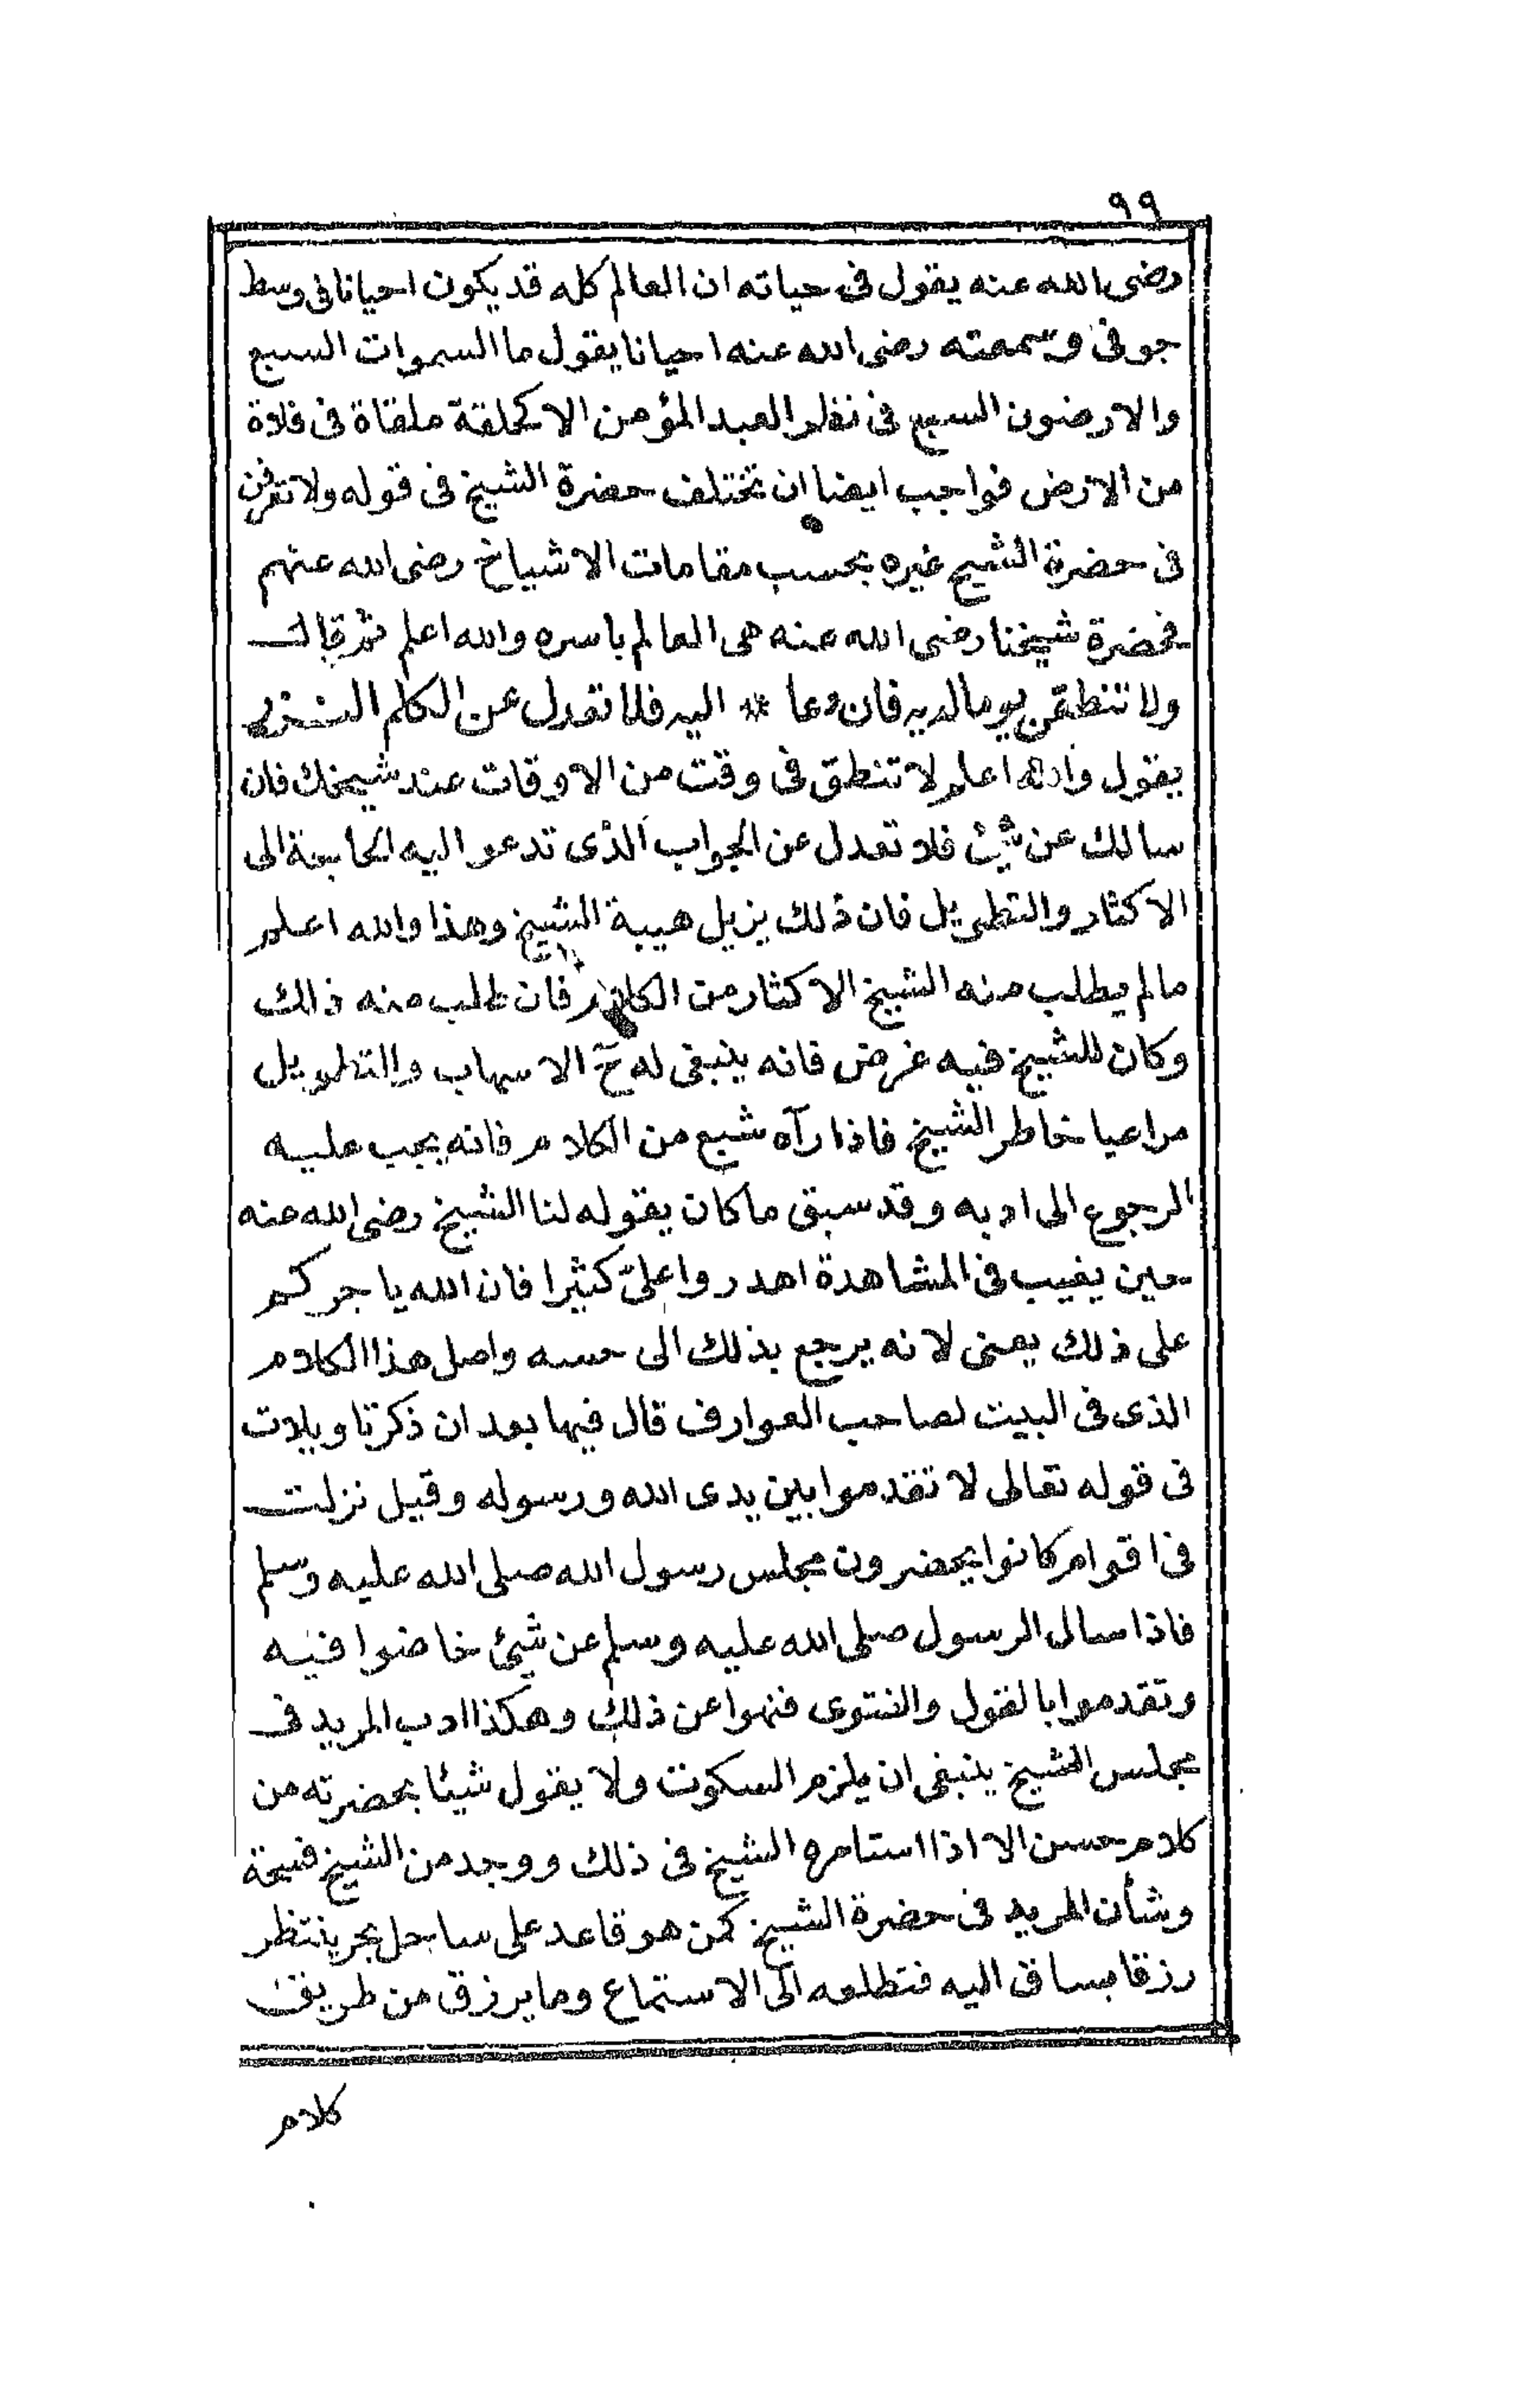 ٩٩
رضى الله عنه يقول فى حياته ان العالم كله قد يكون احيانا فى وسط
جوفى وسمعته رضى الله عنه احيانا يقول ما السموات السبع
والارضون السبع فى نظر العبد المؤمن الا كحلقة ملقاة فى فلاة
من الارض فواجب ايضا ان تختلف حضرة الشيخ فى قوله ولا تعرفن
فى حضرة الشيخ غيره بحسب مقامات الاشياخ رضى الله عنهم
فحضرة شيخنا رضى الله عنه هى العالم باسره والله اعلم ثم قال
ولا تنطقن يوما لديه فان دعا * اليه فلا تعدل عن الكلم النزر
يقول والله اعلم لا تنطق فى وقت من الاوقات عند شيخك فان
سالك عن شئ فلا تعدل عن الجواب الذى تدعو اليه الحاجة الى
الاكثار والتطويل فان ذلك يزيل هيبة الشيخ وهذا والله اعلم
مالم يطلب منه الشيخ الاكثار من الكلام فان طلب منه ذالك
وكان للشيخ فيه غرض فانه ينبغى له ح الاسهاب والتطويل
مراعيا خاطر الشيخ فاذا رآه شبع من الكلام فانه يجب عليه
الرجوع الى ادبه وقد سبق ما كان يقوله لنا الشيخ رضى الله عنه
حين يغيب فى المشاهدة اهدروا علىّ كثيرا فان الله ياجركم
على ذلك يعنى لانه يرجع بذلك الى حسه واصل هذا الكلام
الذى فى البيت لصاحب العوارف قال فيها بعد ان ذكر تاويلات
فى قوله تعالى لا تقدموا بين يدى الله ورسوله وقيل نزلت
فى اقوام كانوا يحضرون مجلس رسول الله صلى الله عليه وسلم
فاذا سال الرسول صلى الله عليه وسلم عن شئ خاضوا فيه
وتقدموا بالقول والفتوى فنهوا عن ذلك وهكذا ادب المريد فى
مجلس الشيخ ينبغى ان يلزم السكوت ولا يقول شيئا بحضرته من
كلام حسن الا اذا استامره الشيخ فى ذلك ووجد من الشيخ فسحة
وشأن المريد فى حضرة الشيخ كمن هو قاعد على ساحل بحر ينتظر
رزقا يساق اليه فتطلعه الى الاستماع وما يرزق من طريق
كلام